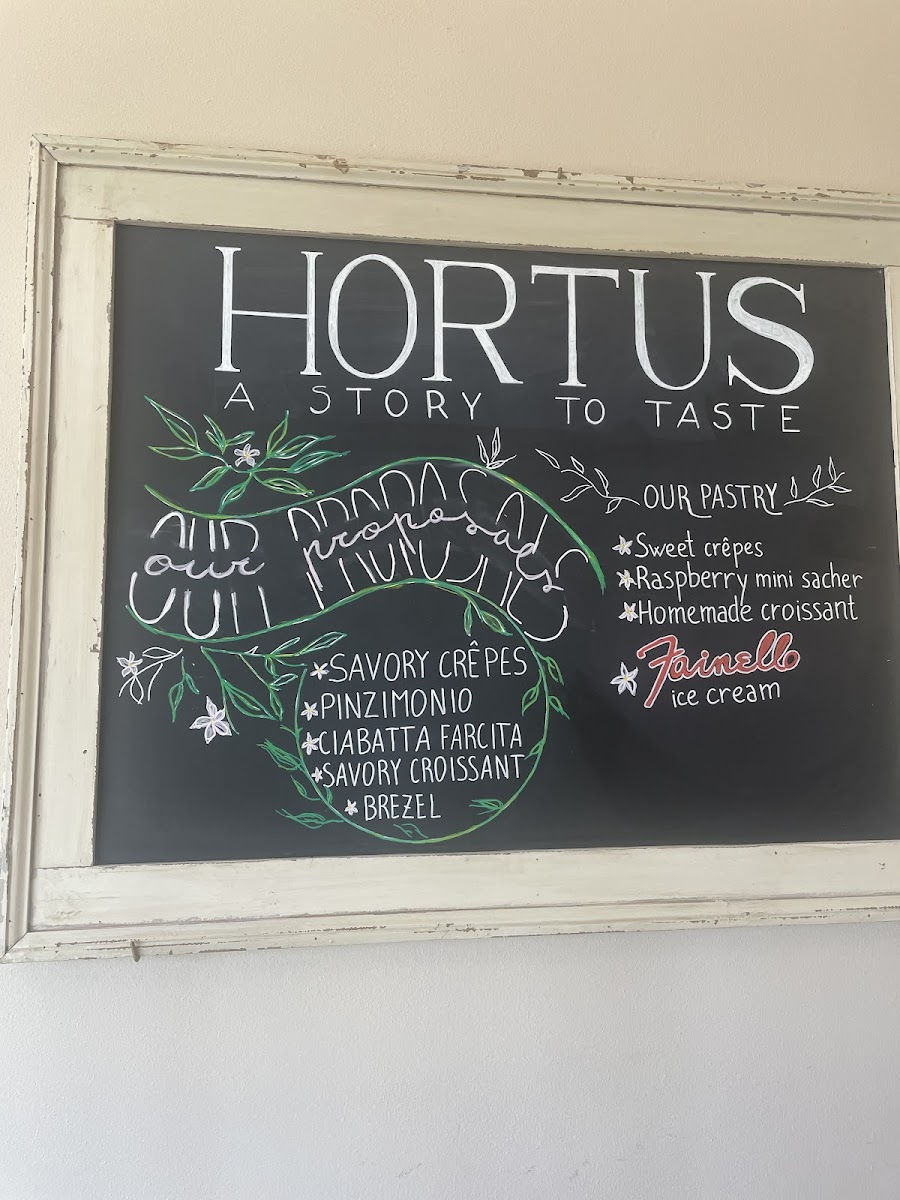 HORTUS
A STORY TO TASTE
OUR PROPOSALS
our proposals
SAVORY CRÊPES
PINZIMONIO
CIABATTA FARCITA
SAVORY CROISSANT
BREZEL
OUR PASTRY
Sweet crêpes
Raspberry mini sacher
Homemade croissant
Fainello
ice cream